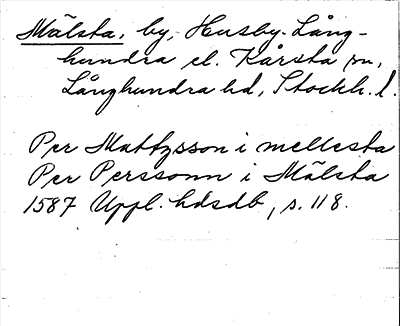 Mälsta, by, Husby-Lång-
hundra el. Kårsta sn,
Långhundra hd, Stockh. l.
Per Mattzsson i mellesta
Per Perssonn i Mälsta
1587 Uppl. hdsdb, s. 118.